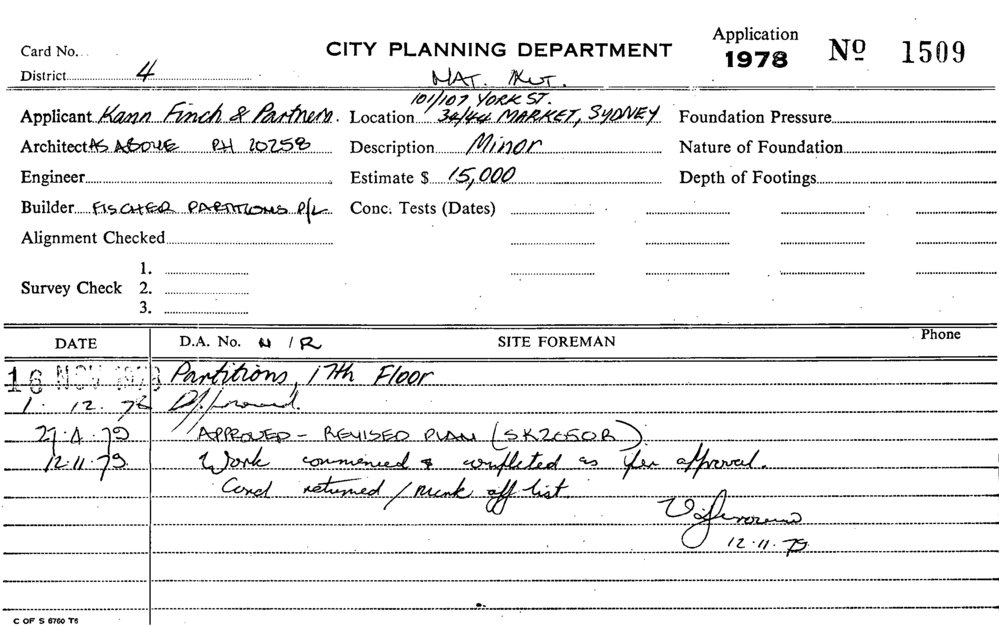 Card No.
CITY PLANNING DEPARTMENT
Application
1978 No 1509
District 4
NAT. MUT.
101/107 YORK ST.
Applicant Kann Finch & Partners. Location 34/44 MARKET, SYDNEY Foundation Pressure
Architect AS ABOVE PH 20258 Description Minor Nature of Foundation
Engineer Estimate $ 15,000 Depth of Footings
Builder FISCHER PARTITIONS P/L Conc. Tests (Dates)
Alignment Checked
1.
Survey Check 2.
3.
DATE D.A. No. N/R SITE FOREMAN Phone
16 NOV 1978 Partitions, 17th Floor
1. 12. 78 Approved.
27.4.79 APPROVED - REVISED PLAN (SK2050R)
12.11.79 Work commenced & completed as per approval.
Card returned / mark off list
12.11.79
C OF S 6760 T6